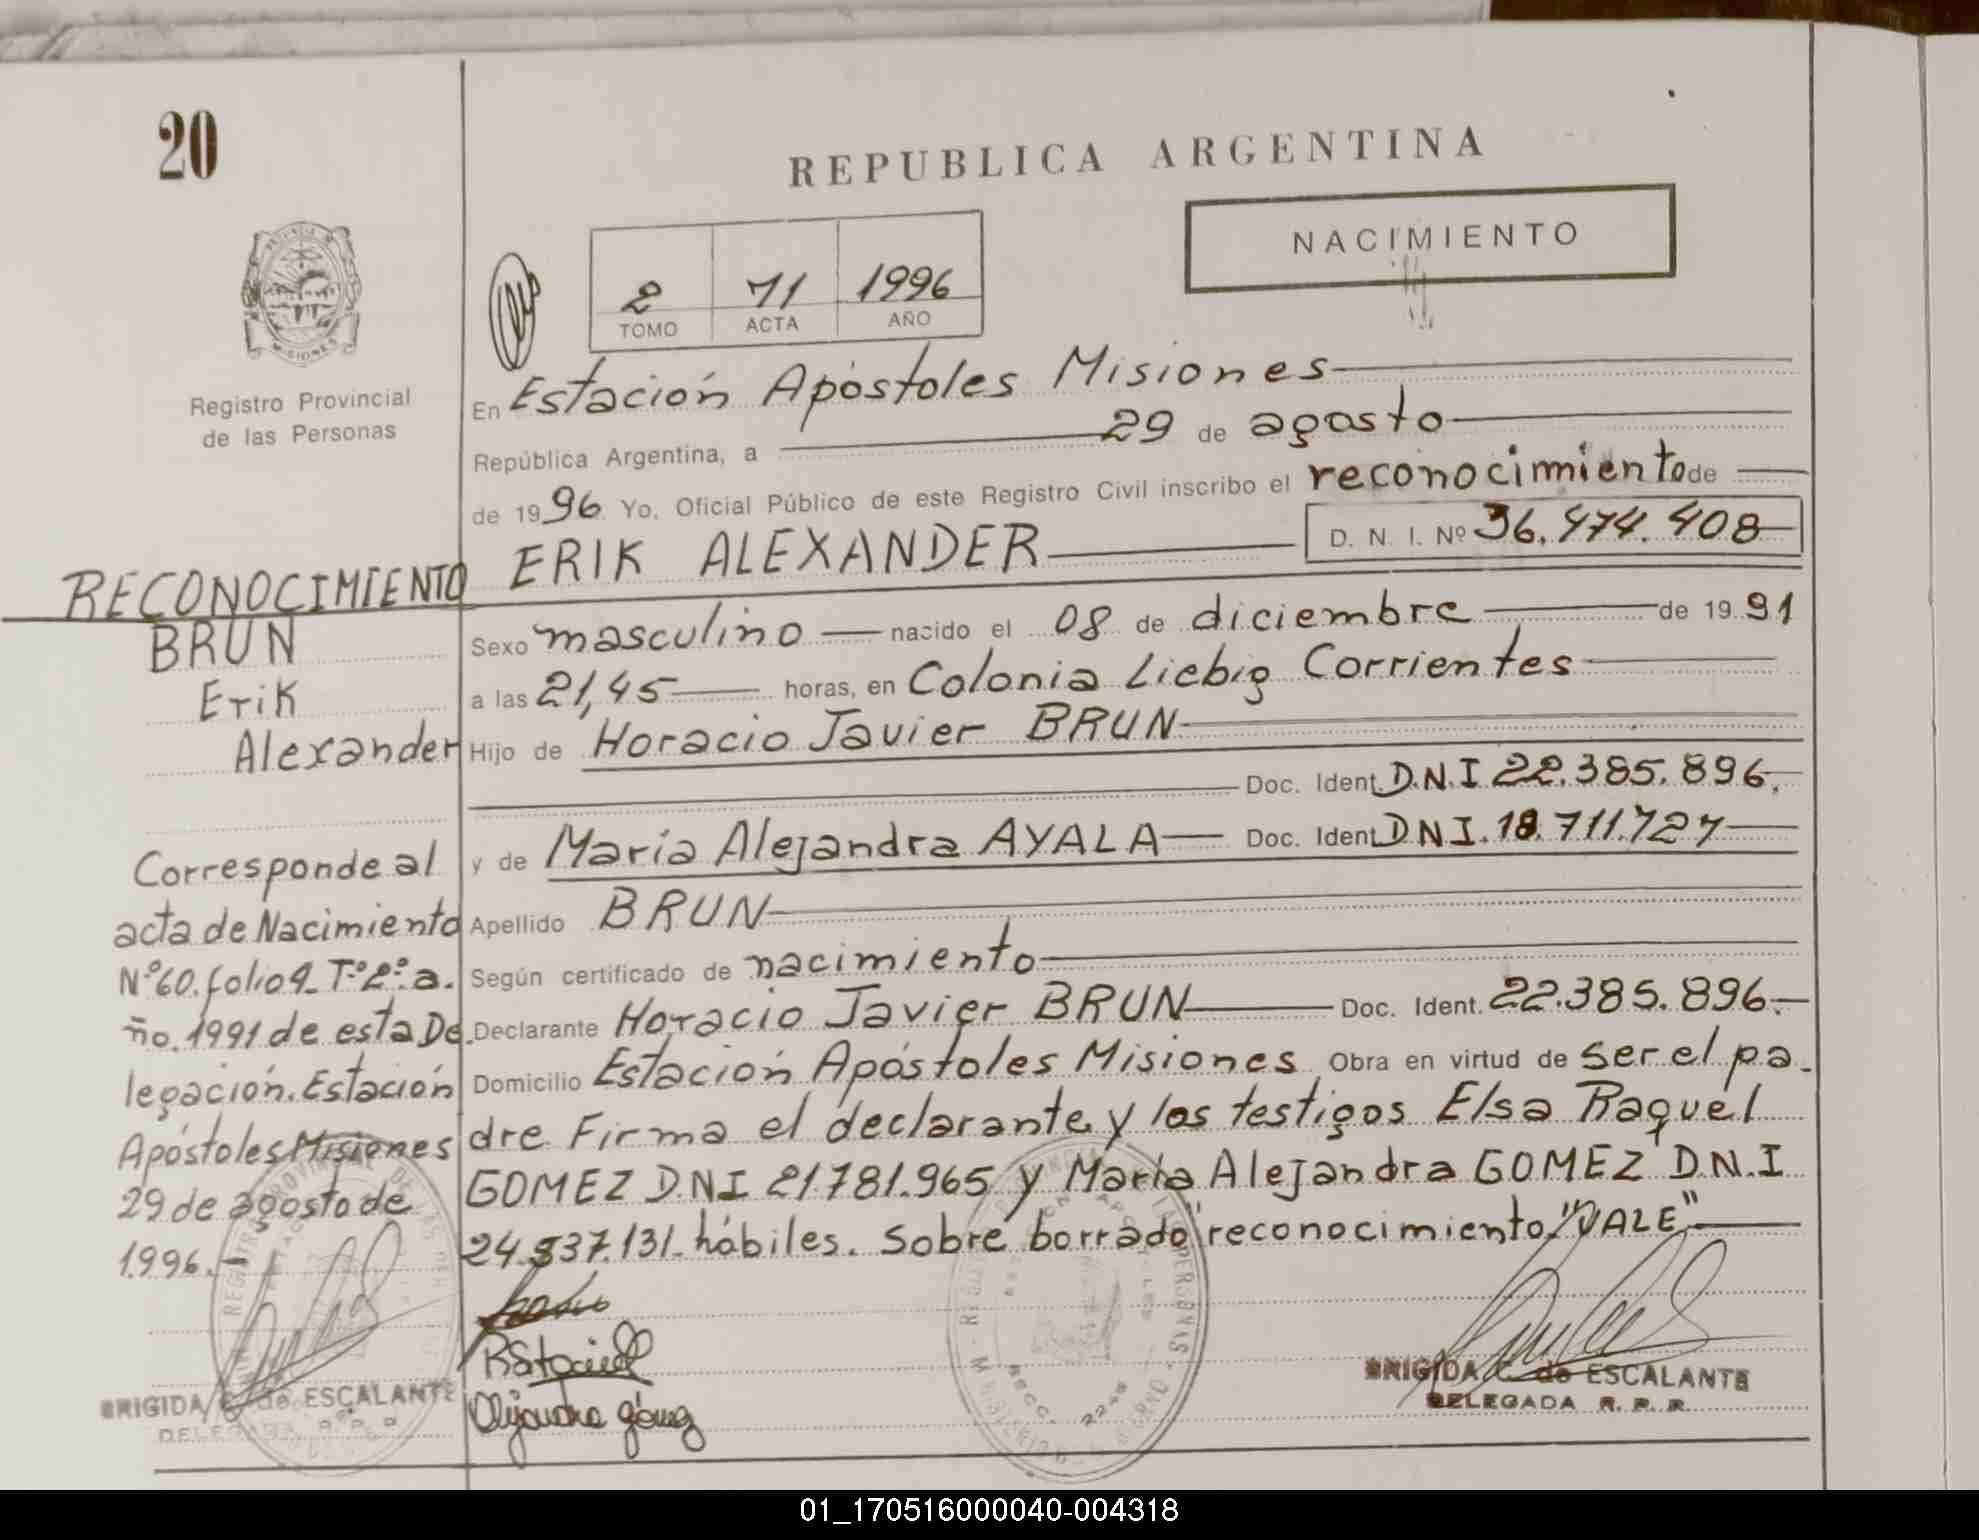 20
REPUBLICA ARGENTINA
NACIMIENTO
2 71 1996
TOMO ACTA AÑO
MISIONES
Registro Provincial
de las Personas
En Estación Apóstoles Misiones
República Argentina, a 29 de agosto
de 1996 Yo, Oficial Público de este Registro Civil inscribo el reconocimiento de
ERIK ALEXANDER D. N. I. Nº 36.474.408
Sexo masculino nacido el 08 de diciembre de 1991
a las 21,45 horas, en Colonia Liebig Corrientes
Hijo de Horacio Javier BRUN
Doc. Ident. D.N.I 22.385.896.
y de María Alejandra AYALA Doc. Ident. DNI. 18.711.727
Apellido BRUN
Según certificado de nacimiento
Declarante Horacio Javier BRUN Doc. Ident. 22.385.896.
Domicilio Estación Apóstoles Misiones Obra en virtud de ser el pa-
dre Firma el declarante y los testigos Elsa Raquel
GOMEZ D.NI 21781.965 y María Alejandra GOMEZ D.N.I
24.537.131. hábiles. Sobre borrado "reconocimiento" "VALE"
RECONOCIMIENTO
BRUN
Erik
Alexander
Corresponde al
acta de Nacimiento
Nº60. folio 9 Tº2º. a.
ño. 1991 de esta De
legación. Estación
Apóstoles Misiones
29 de agosto de
1.996.-
BRIGIDA C. de ESCALANTE
DELEGADA R. P. P.
Alejandra gómez
BRIGIDA C. de ESCALANTE
DELEGADA R. P. P.
01_170516000040-004318